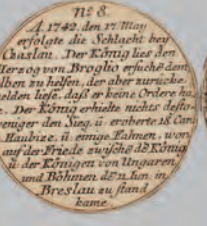 No 8.
A. 1742. den 17. May
erfolgte die Schlacht bey
Czaslau. Der König lies den
Herzog von Broglio ersuchē dem
lben zu helfen, der aber zurücke
elden liese, daß er keine Ordere ha
e. Der König erhielte nichts desto
eniger den Sieg, ü. eroberte 18 Can
Haubize. ü. einige Fahnen, wor
auf der Friede zwischē dē König
ü. der Königen von Ungaren
und Böhmen dē 11 Iun. in
Breslau zu stand
kame.